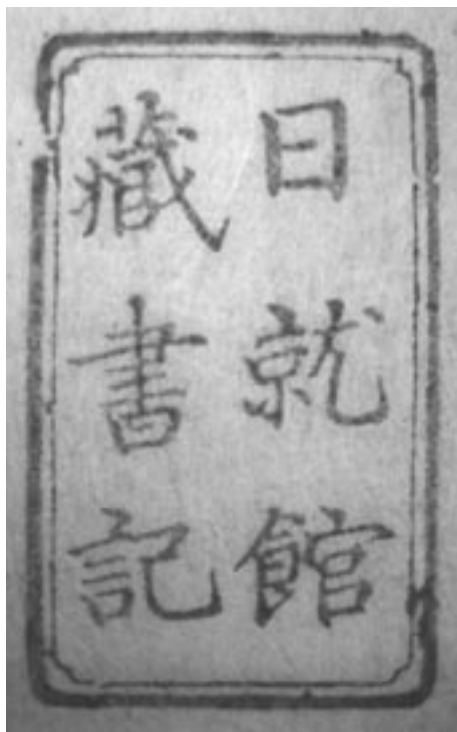 日就館
藏書記